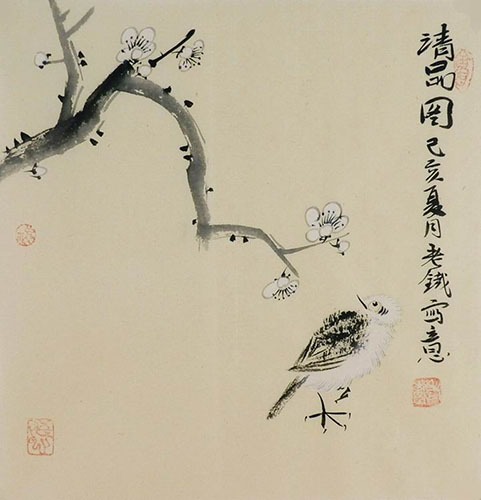 清品图己亥夏月老鐵写意